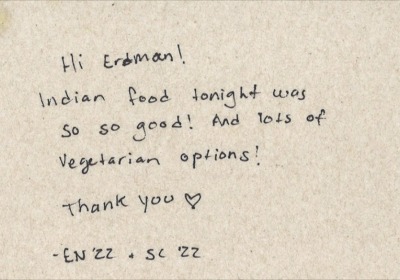 Hi Erdman!
Indian food tonight was
so so good! And lots of
vegetarian options!
Thank you ♡
-EN '22 + SC '22